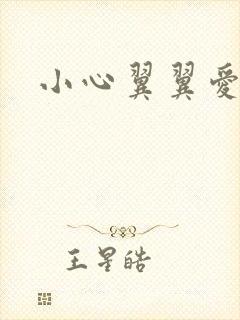 小心翼翼愛
王星皓